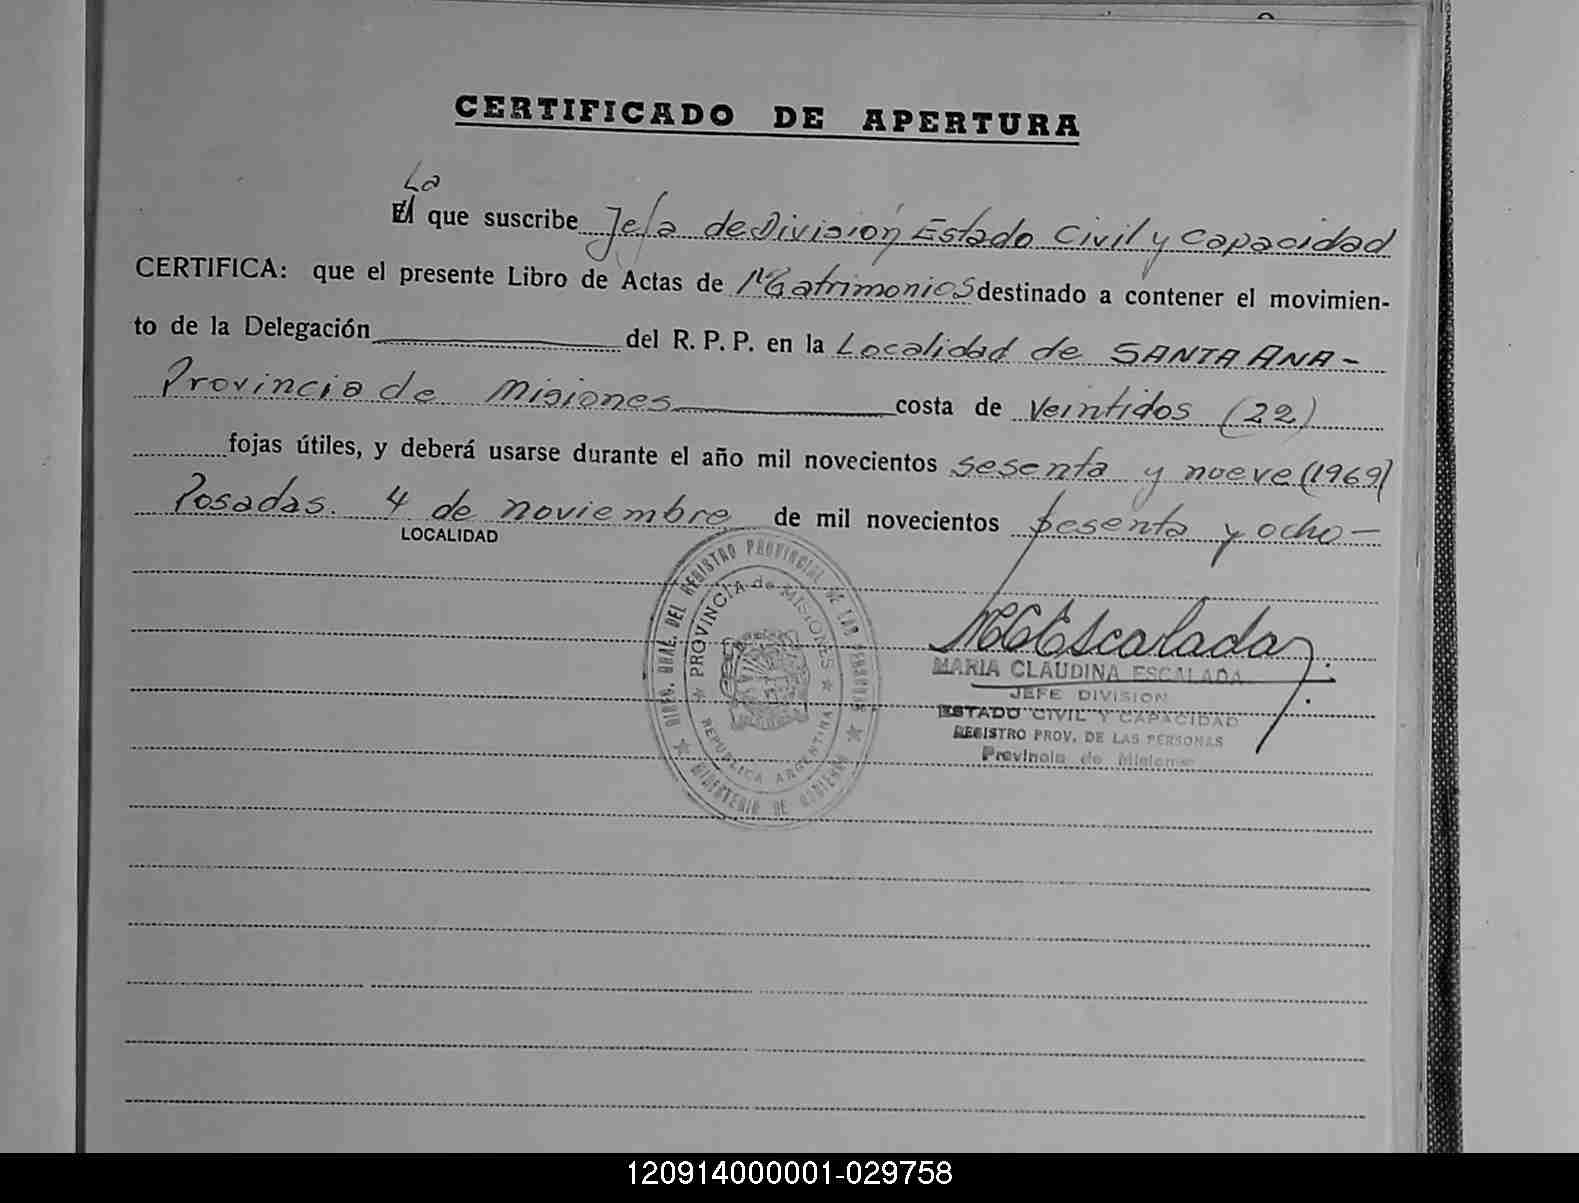 CERTIFICADO DE APERTURA
La
El que suscribe Jefa de División Estado Civil y Capacidad
CERTIFICA: que el presente Libro de Actas de Matrimonios destinado a contener el movimien-
to de la Delegación del R. P. P. en la Localidad de SANTA ANA -
Provincia de Misiones costa de Veintidos (22)
fojas útiles, y deberá usarse durante el año mil novecientos sesenta y nueve (1969)
Posadas. 4 de noviembre de mil novecientos sesenta y ocho -
LOCALIDAD
DIREC. GRAL. DEL REGISTRO PROVINCIAL DE LAS PERSONAS
PROVINCIA de MISIONES
REPUBLICA ARGENTINA
MINISTERIO DE GOBIERNO
MCEscalada
MARIA CLAUDINA ESCALADA
JEFE DIVISION
ESTADO CIVIL Y CAPACIDAD
REGISTRO PROV. DE LAS PERSONAS
Provincia de Misiones
120914000001-029758